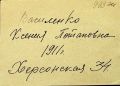 Василенко
Ксения Потаповна
1911г.
Херсонская 34